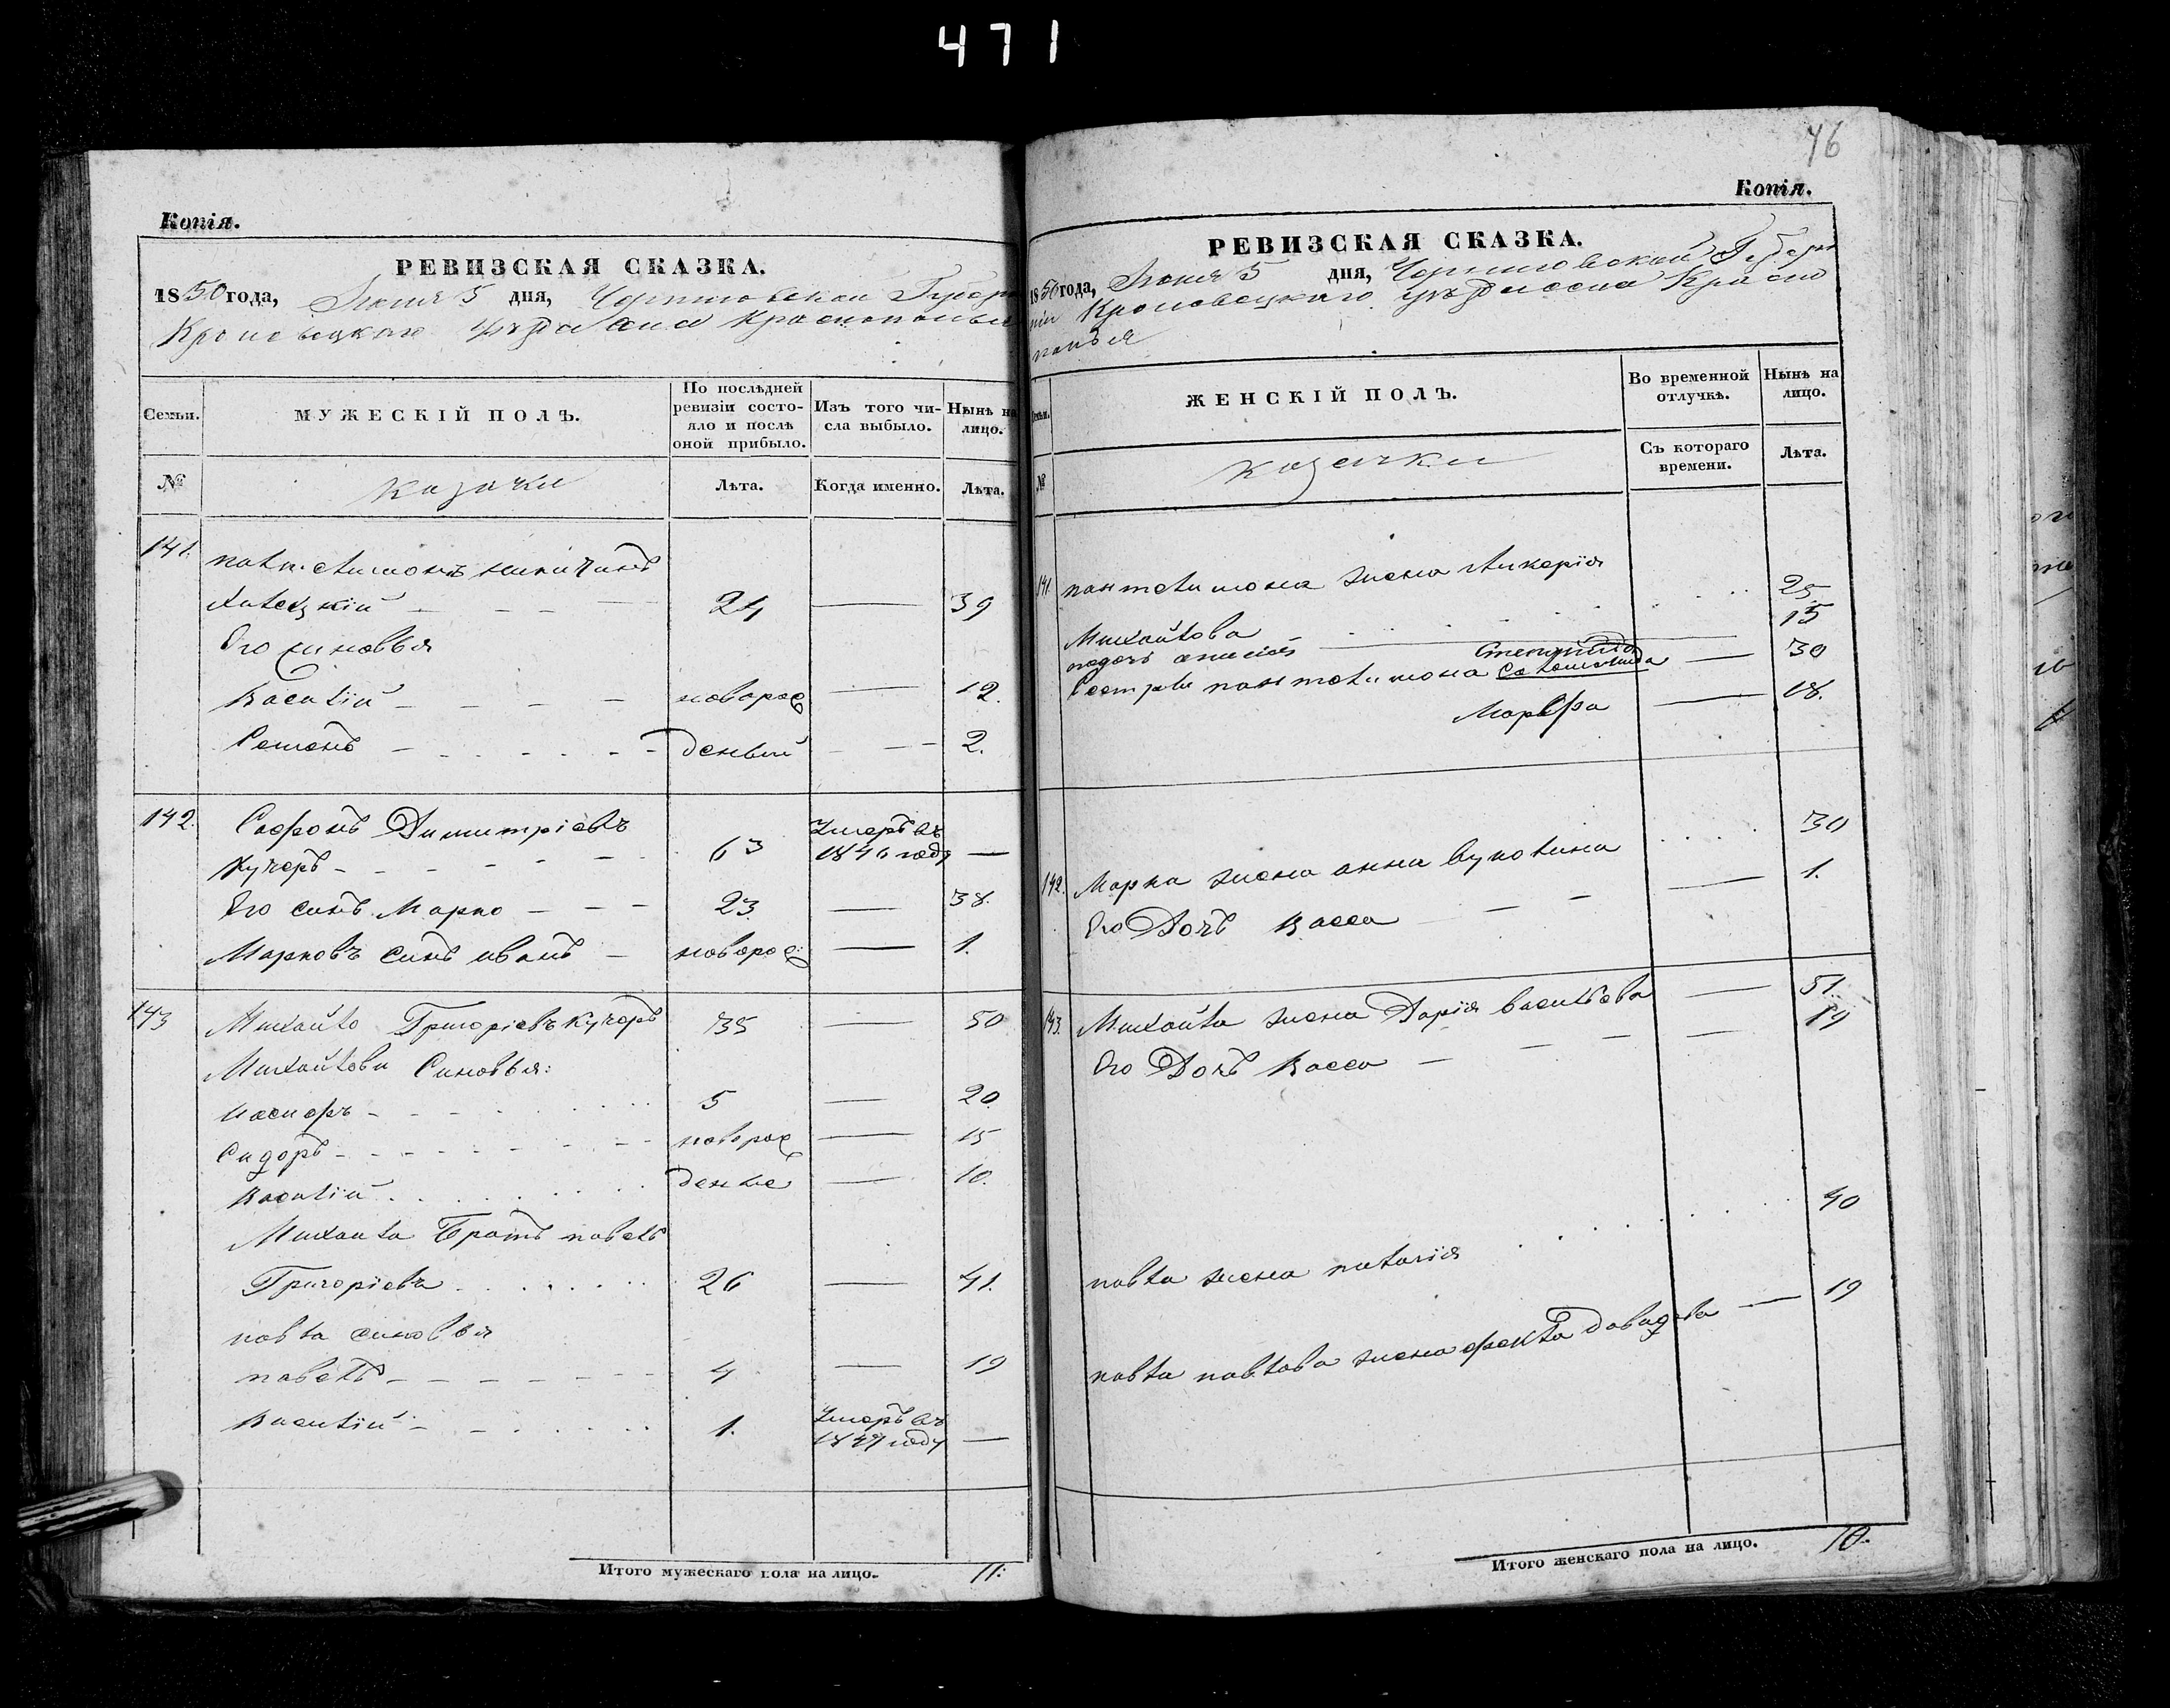 471
Копія.
РЕВИЗСКАЯ СКАЗКА.
1850 года, Іюня 5 дня, Черниговской Губерн
Кролевецкаго уѣзда села Краснополья
Семьи.
МУЖЕСКІЙ ПОЛЪ.
По послѣдней ревизіи состояло и послѣ оной прибыло.
Изъ того числа выбыло.
Нынѣ на лицо.
№
казачки
Лѣта.
Когда именно.
Лѣта.
141.
Его синовья
Василій новорож 12.
Семенъ 2.
142. Софронъ Димитріевъ
Кучеръ 63 Умеръ въ 1846 году
Его синъ Марко 23. 38.
Марковъ синъ иванъ новорож 1.
143 Михайло Григоріевъ Кучеръ 35 50
Михайлови Синовья:
иосифъ 5 20.
Сидоръ новорож 15
Василій 10.
Михайла Братъ павелъ
Григоріевъ 26 41.
павла синовья
павелъ 4 19
Василій 1. Умеръ въ году
Итого мужескаго пола на лицо. 11.
76
Копія.
РЕВИЗСКАЯ СКАЗКА.
1850 года, Іюня 5 дня, Черниговской Губерн
ніи Кролевецкаго уѣзда села Красно
полья
Семьи.
ЖЕНСКІЙ ПОЛЪ.
Во временной отлучкѣ.
Нынѣ на лицо.
№
казачки
Съ котораго времени.
Лѣта.
141. пантелимона жена Гликерія
Михайлова 25
15
Сестри пантелимона 30
Марфа 18.
142. Марка жена анна вуколина 30
Его Дочъ Васса 1.
143. Михайла жена Дарія васильева 51.
Его Дочъ Васса
павла жена пелагія 40
павла павлова жена фекла Давидова 19
Итого женскаго пола на лицо. 10.